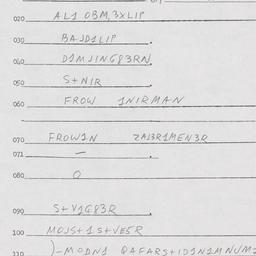 020 AL1 OBM,3XLIP
030 BAJD1LIP.
040 D1MJING83RN
050 S+NIR.
060 FROW 1NIRMAN
070 FROW1N ZA13R1MEN3R
071 — .
080 O
090 S+V1G83R.
100 MOJS+1S+VE5R
110 )-MODN1 QAFARS+ID1N1MNUM2